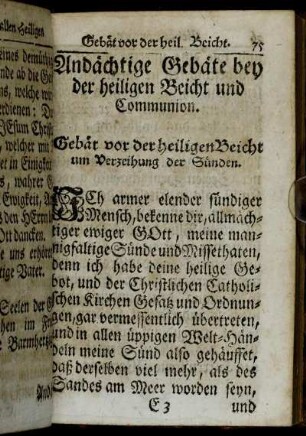 allen Heiligen
eines demüthig
nde ab die Ge
ns, welche wir
erdienen: D
JEsum Christ
mit, welcher mi
et in Einigkeit
s, wahrer G
Ewigkeit, A
den HErrn
Ott dancken.
e uns erhör
tige Vater.
Seelen der G
hen im Fri
Barmhertz
And
Gebät vor der heil. Beicht. 75
Andächtige Gebäte bey
der heiligen Beicht und
Communion.
Gebät vor der heiligen Beicht
um Verzeihung der Sünden.
ICh armer elender sündiger
Mensch, bekenne dir, allmäch-
tiger ewiger GOtt, meine man-
nigfaltige Sünde und Missethaten,
denn ich habe deine heilige Ge-
bot, und der Christlichen Catholi-
schen Kirchen Gesatz und Ordnun-
gen, gar vermessentlich übertreten,
und in allen üppigen Welt-Hän-
deln meine Sünd also gehäuffet,
daß derselben viel mehr, als des
Sandes am Meer worden seyn,
E 3 und